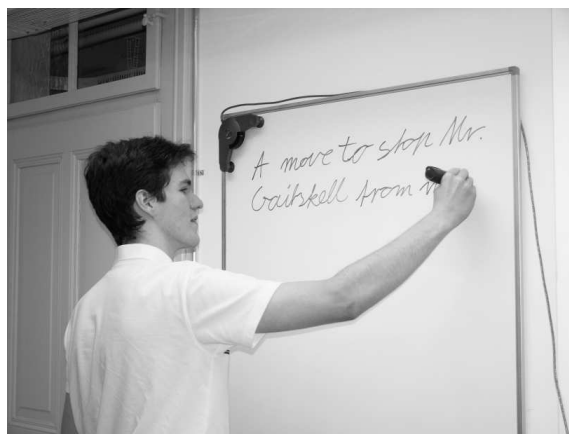 A move to stop Mr.
Gaitskell from